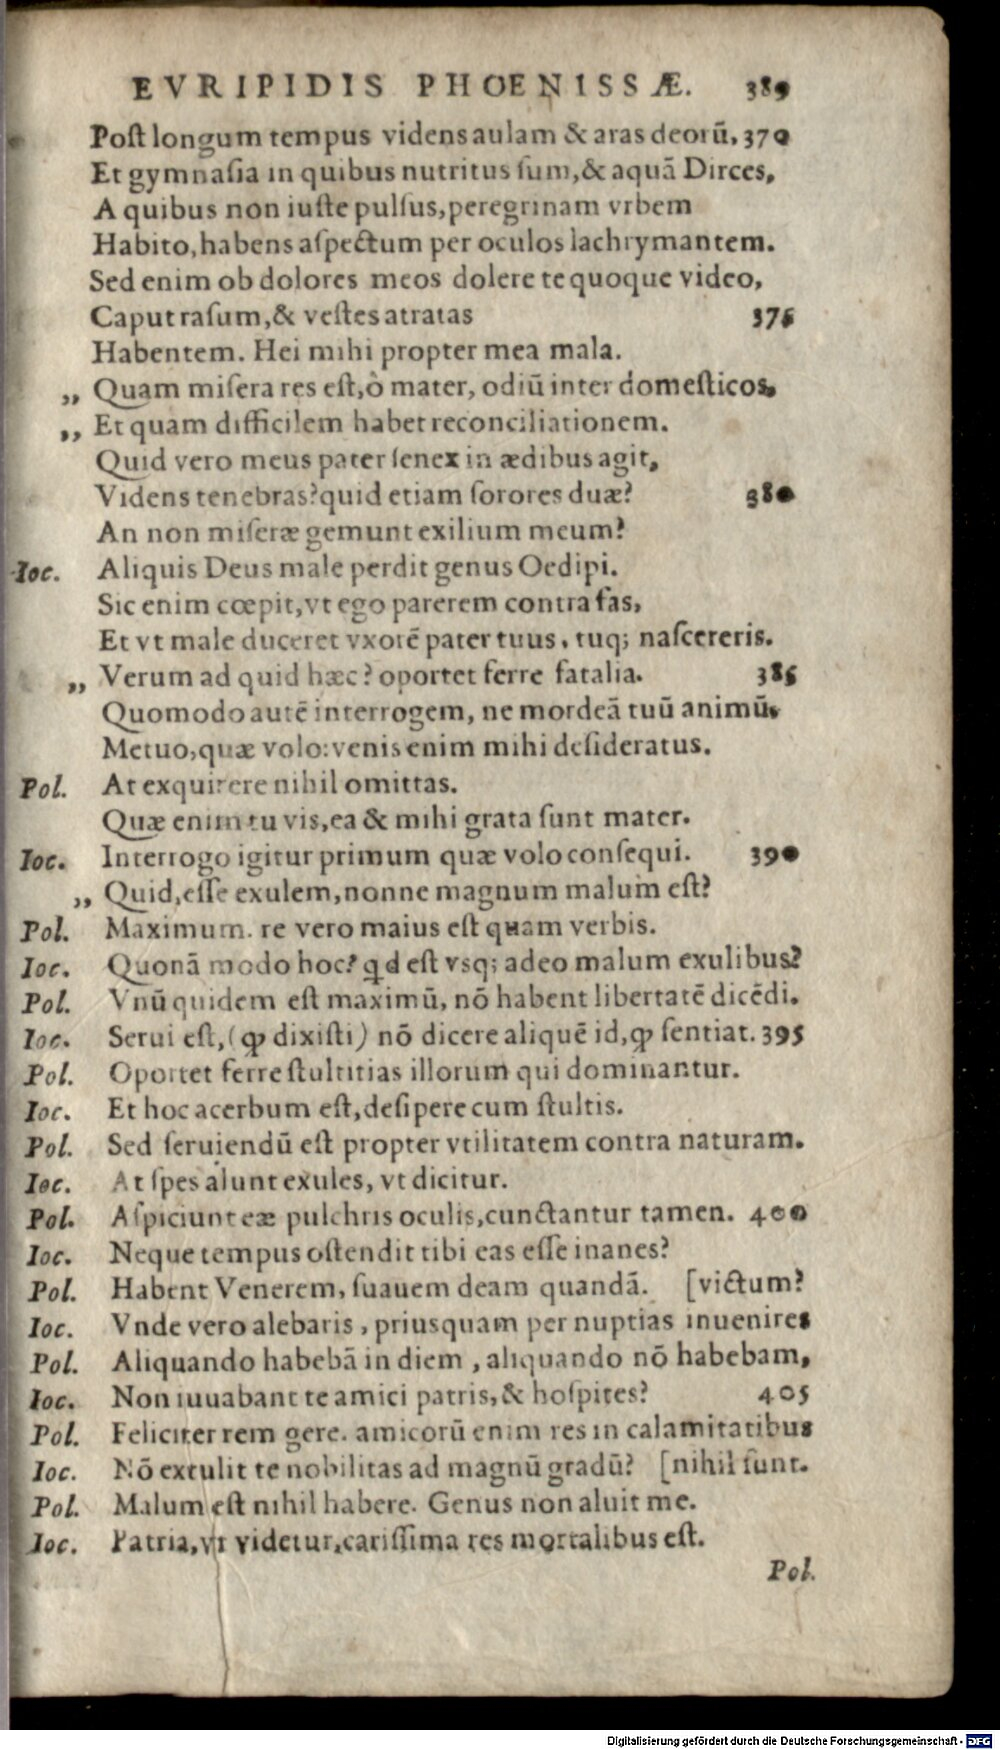 EVRIPIDIS PHOENISSÆ. 389
Post longum tempus videns aulam & aras deorū, 370
Et gymnasia in quibus nutritus sum, & aquā Dirces,
A quibus non iuste pulsus, peregrinam vrbem
Habito, habens aspectum per oculos lachrymantem.
Sed enim ob dolores meos dolere te quoque video,
Caput rasum, & vestes atratas 375
Habentem. Hei mihi propter mea mala.
„ Quam misera res est, ò mater, odiū inter domesticos,
„ Et quam difficilem habet reconciliationem.
Quid vero meus pater senex in ædibus agit,
Videns tenebras? quid etiam sorores duæ? 380
An non miseræ gemunt exilium meum?
Ioc. Aliquis Deus male perdit genus Oedipi.
Sic enim cœpit, vt ego parerem contra fas,
Et vt male duceret vxorē pater tuus, tuq; nascereris.
„ Verum ad quid hæc? oportet ferre fatalia. 385
Quomodo autē interrogem, ne mordeā tuū animū,
Metuo, quæ volo: venis enim mihi desideratus.
Pol. At exquirere nihil omittas.
Quæ enim tu vis, ea & mihi grata sunt mater.
Ioc. Interrogo igitur primum quæ volo consequi. 390
„ Quid, esse exulem, nonne magnum malum est?
Pol. Maximum. re vero maius est quam verbis.
Ioc. Quonā modo hoc? qd est vsq; adeo malum exulibus?
Pol. Vnū quidem est maximū, nō habent libertatē dicēdi.
Ioc. Serui est, (ꝙ dixisti) nō dicere aliquē id, ꝙ sentiat. 395
Pol. Oportet ferre stultitias illorum qui dominantur.
Ioc. Et hoc acerbum est, desipere cum stultis.
Pol. Sed seruiendū est propter vtilitatem contra naturam.
Ioc. At spes alunt exules, vt dicitur.
Pol. Aspiciunt eæ pulchris oculis, cunctantur tamen. 400
Ioc. Neque tempus ostendit tibi eas esse inanes?
Pol. Habent Venerem, suauem deam quandā. [victum?
Ioc. Vnde vero alebaris, priusquam per nuptias inuenires
Pol. Aliquando habebā in diem, aliquando nō habebam,
Ioc. Non iuuabant te amici patris, & hospites? 405
Pol. Feliciter rem gere. amicorū enim res in calamitatibus
Ioc. Nō extulit te nobilitas ad magnū gradū? [nihil sunt.
Pol. Malum est nihil habere. Genus non aluit me.
Ioc. Patria, vt videtur, carissima res mortalibus est.
Pol.
Digitalisierung gefördert durch die Deutsche Forschungsgemeinschaft - DFG